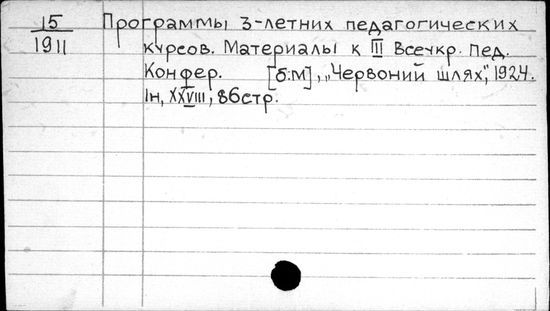 15 Программы 3-летних педагогических
1911 курсов. Материалы к III Всеукр. пед.
Конфер. [б.м], „Червоний шлях", 1924.
Ін, XXVIII, 86стр.